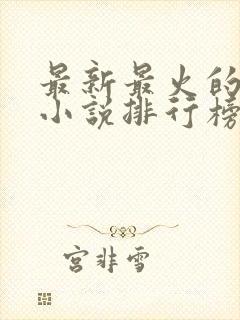 最新最火的
小说排行榜
宫非雪